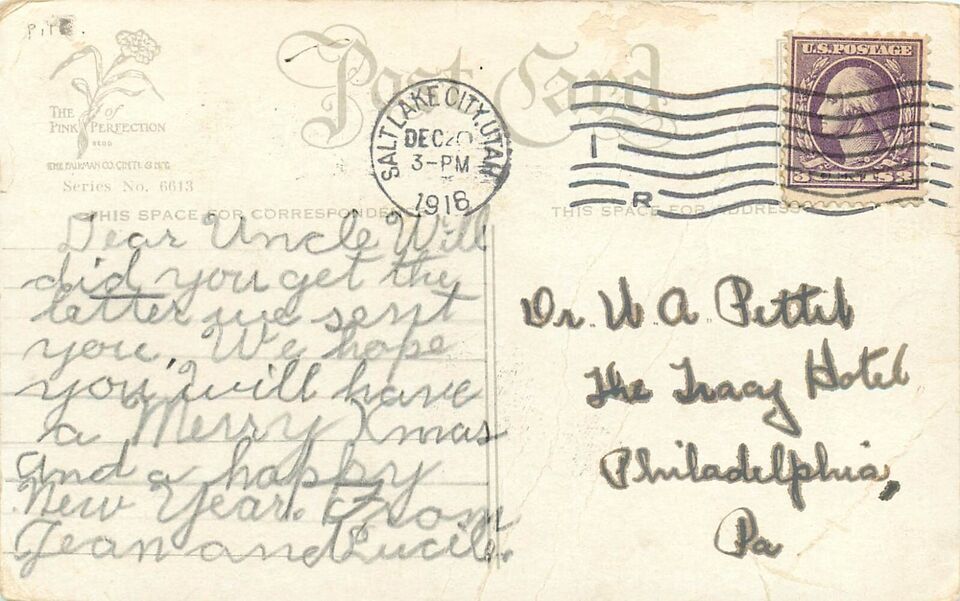 Post Card
THE of
PINK PERFECTION
THE FAIRMAN CO. CIN'TI. & N.Y.
Series No. 6613
SALT LAKE CITY, UTAH
DEC 20
3-PM
1918
U.S. POSTAGE
THIS SPACE FOR CORRESPONDENCE
THIS SPACE FOR ADDRESS
Dear Uncle Will
did you get the
letter we sent
you. We hope
you will have
a Merry Xmas
and a happy
New Year. From
Jean and Lucile.
Dr. W. A. Pettit
The Tracy Hotel
Philadelphia,
Pa